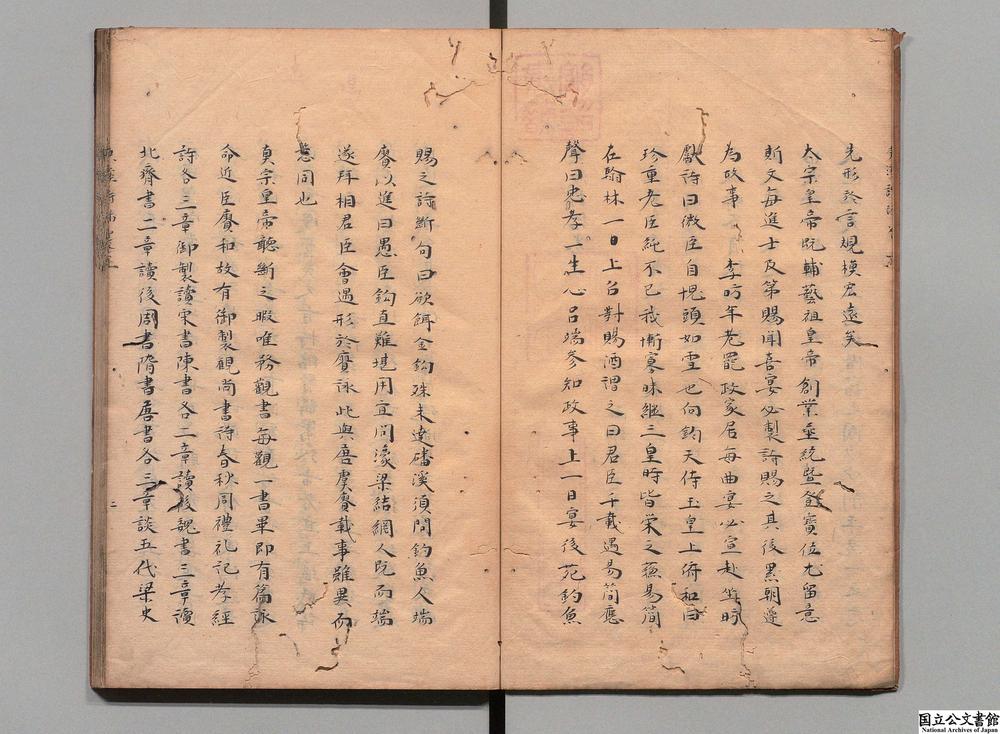 先形於言規模宏遠矣
太宗皇帝既輔藝祖皇帝創業垂統暨登寶位尤留意
斯文每進士及第賜聞喜宴必製詩賜之其後累朝遵
為故事李昉年老罷政家居每曲宴必宣赴坐昉
獻詩曰微臣自愧頭如雪也向鈞天侍玉皇上俯和曰
珍重老臣純不已我慚寡昧繼三皇時皆榮之蘇易簡
在翰林一日上召對賜酒謂之曰君臣千載遇易簡應
聲曰忠孝一生心呂端參知政事上一日宴後苑釣魚
賜之詩斷句曰欲餌金鈎殊未達磻溪須問釣魚人端
賡以進曰愚臣鈎直難堪用宜問濠梁結網人既而端
遂拜相君臣會遇形於賡詠此與唐虞賡載事雖異而
意同也
真宗皇帝聽斷之暇唯務觀書每觀一書畢即有篇詠
命近臣賡和故有御製觀尚書詩春秋周禮礼記孝經
詩各三章御製讀宋書陳書各二章讀後魏書三章讀
北齊書二章讀後周書隋書唐書各三章談五代梁史
二
国立公文書館
National Archives of Japan